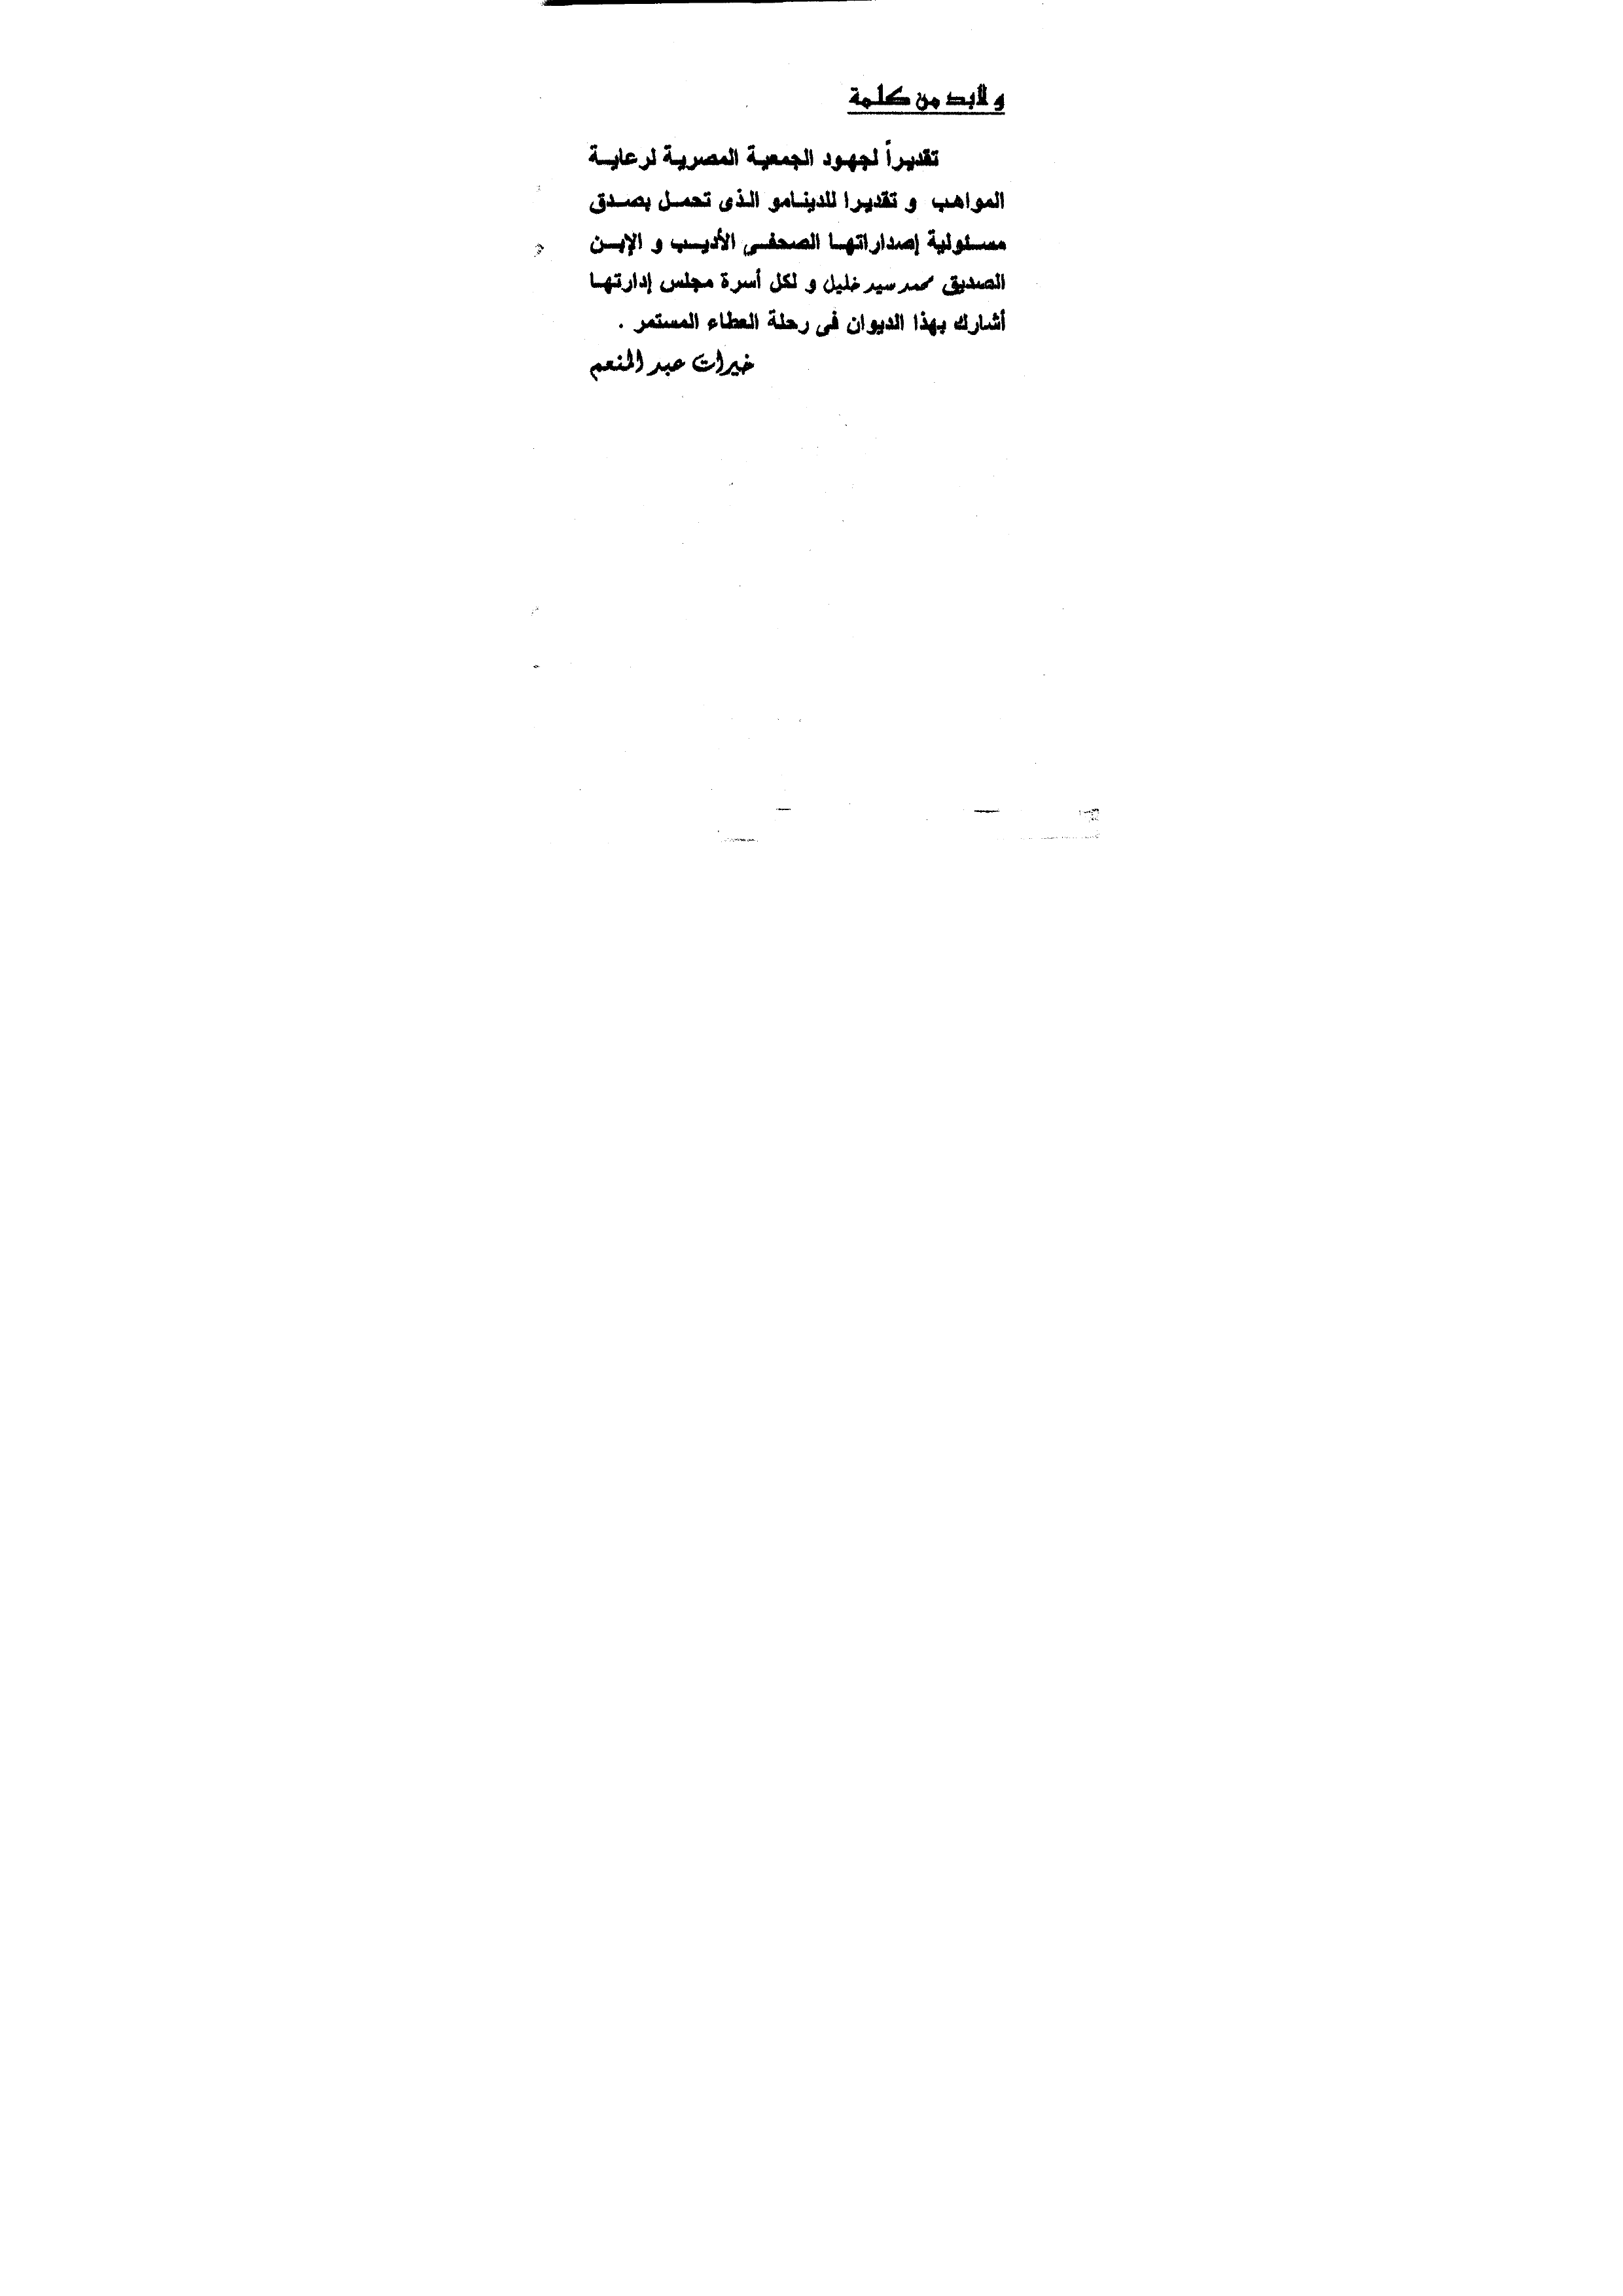 و لابد من كلمة
تقديراً لجهود الجمعية المصرية لرعايـة
المواهب و تقديرا للدينـامو الـذى تحمـل بصـدق
مسـئولية إصداراتهـا الصحفـي الأديـب و الإبـن
الصديق محمد سيد خليل و لكل أسرة مجلس إدارتهـا
أشارك بهذا الديوان فى رحلة العطاء المستمر .
خيرات عبد المنعم